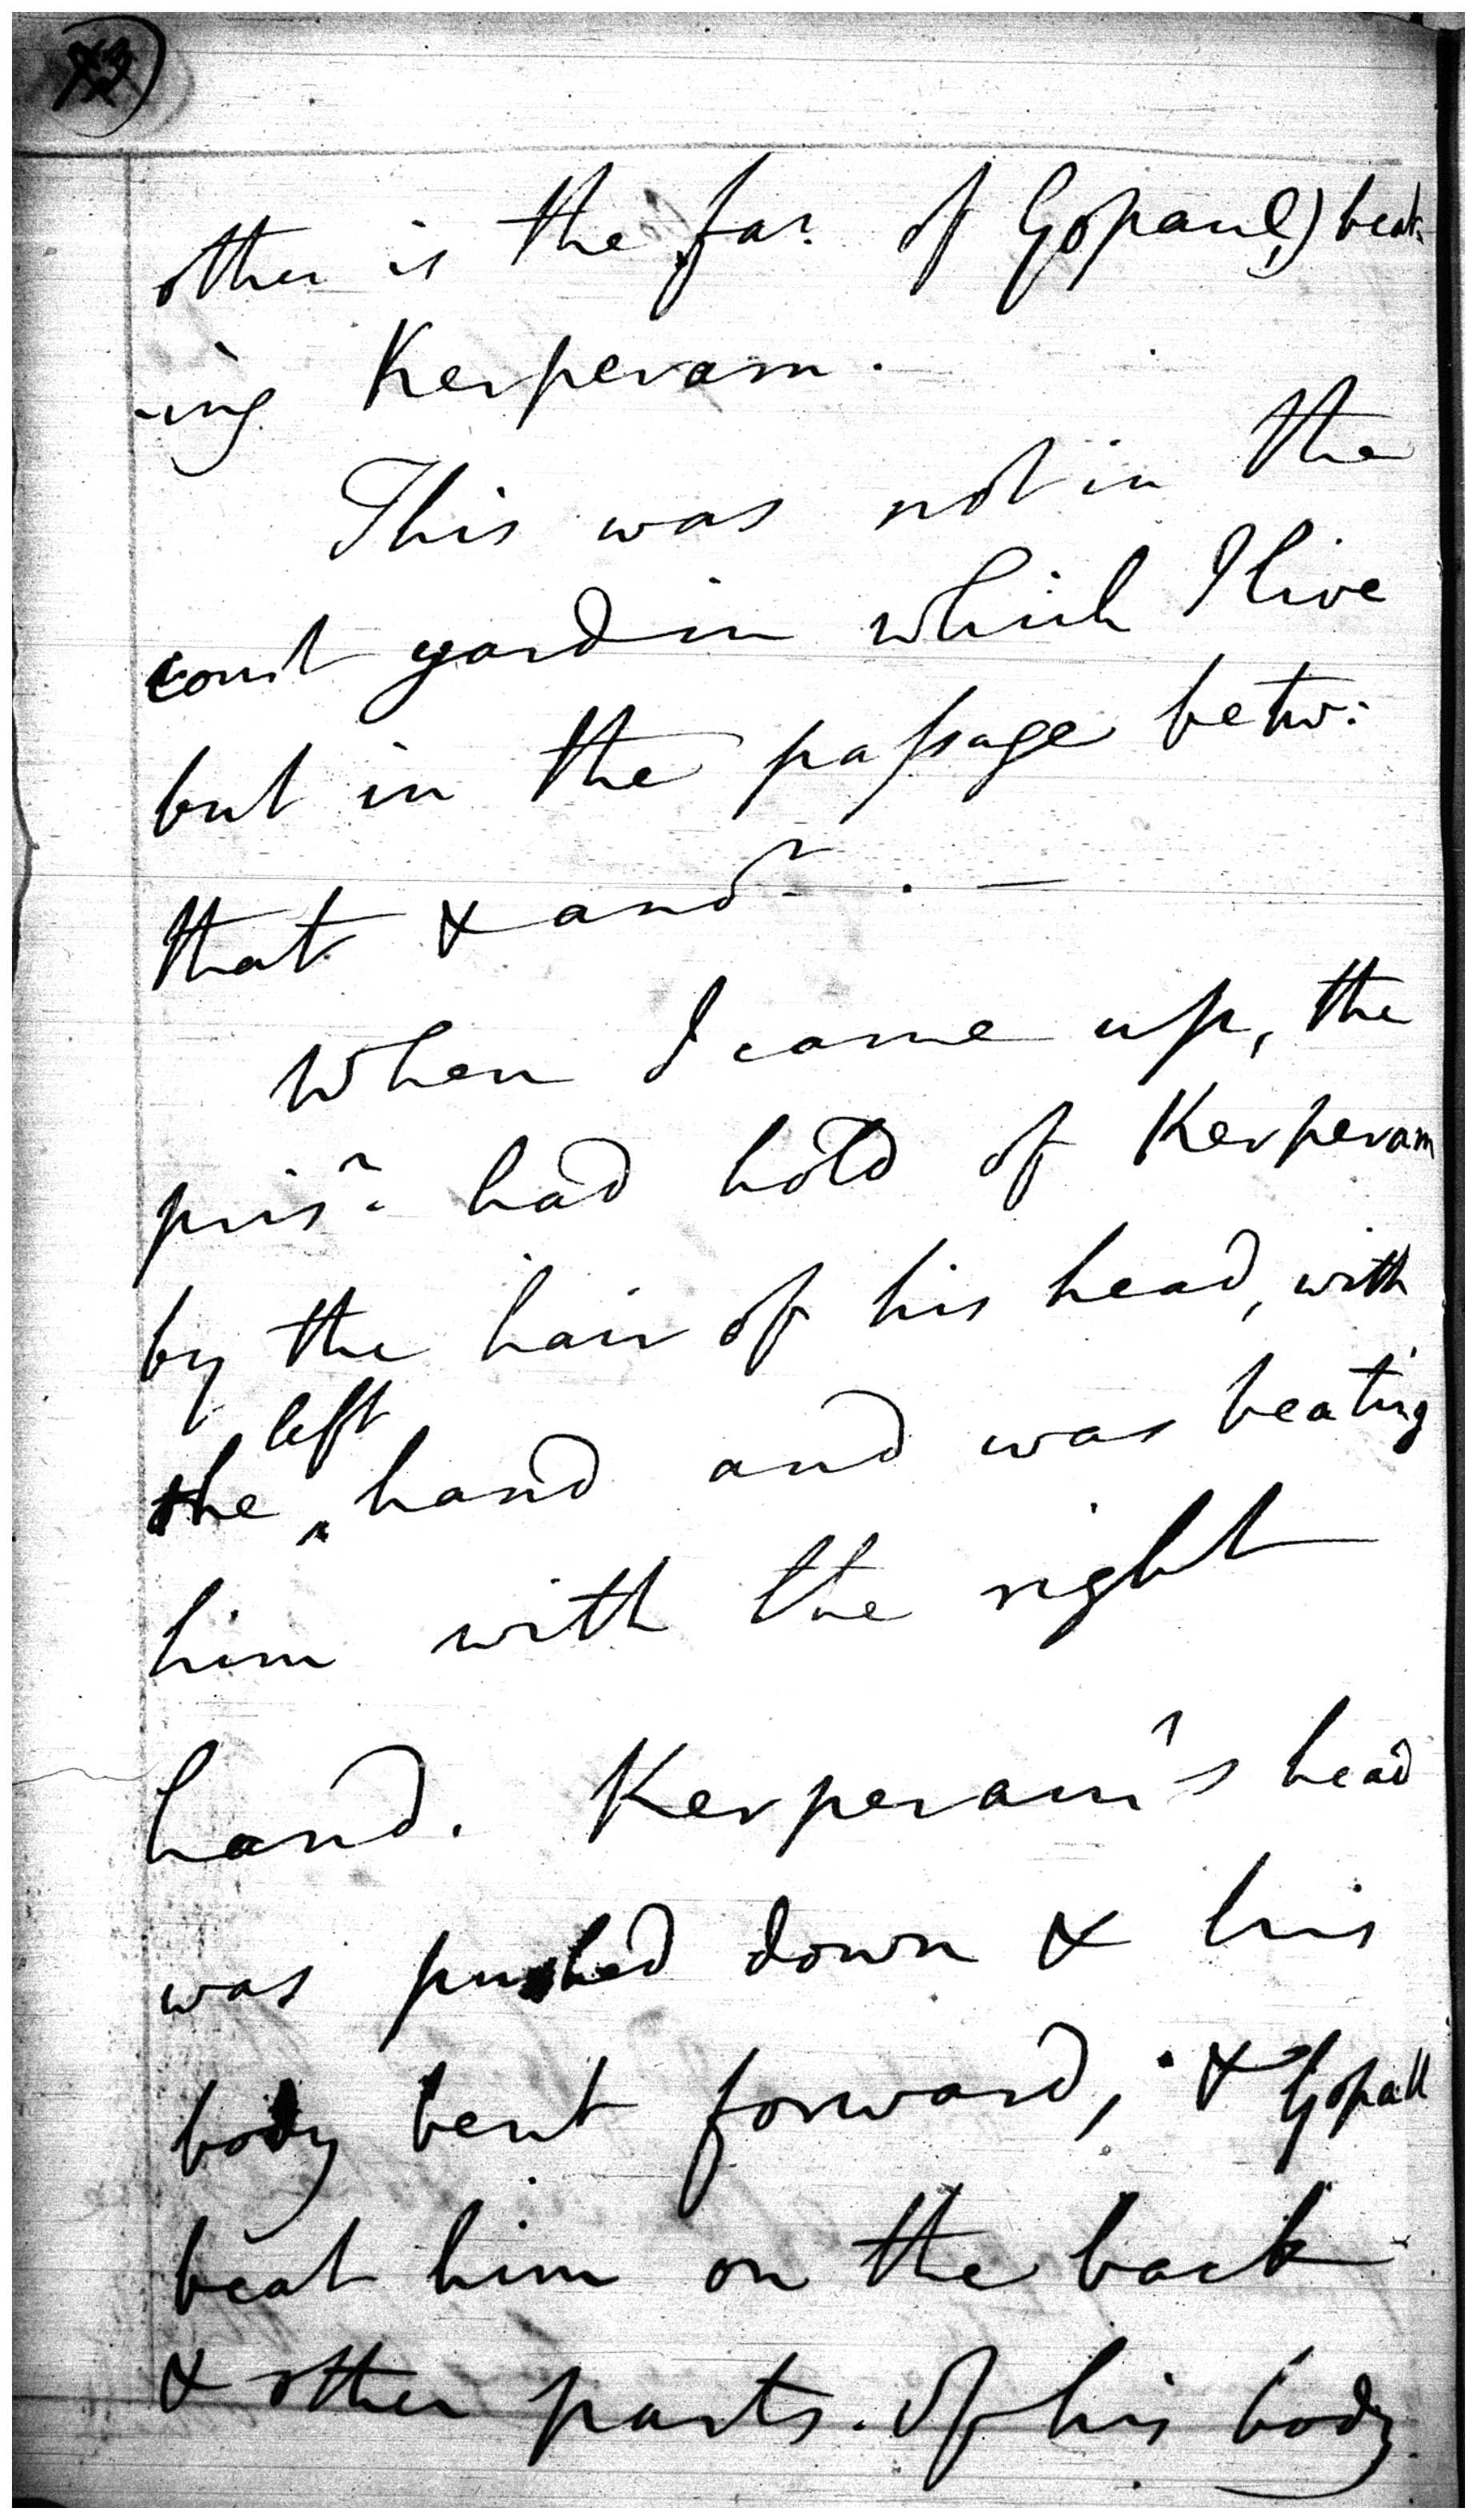 other is the far. of Gopaul,) beat-
-ing Kerperam.
This was not in the
court yard in which I live
but in the passage betw:
that & anor. . —
When I came up, the
prisr. had hold of Kerperam
by the hair of his head, with
left
the ^ hand and was beating
him with the right
hand. Kerperam's head
was pushed down & his
body bent forward, & Gopall
beat him on the back
& other parts of his body